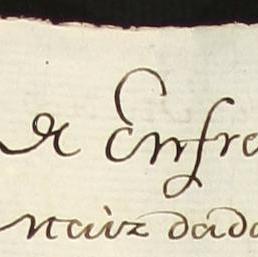 de Enfre
naiz dado